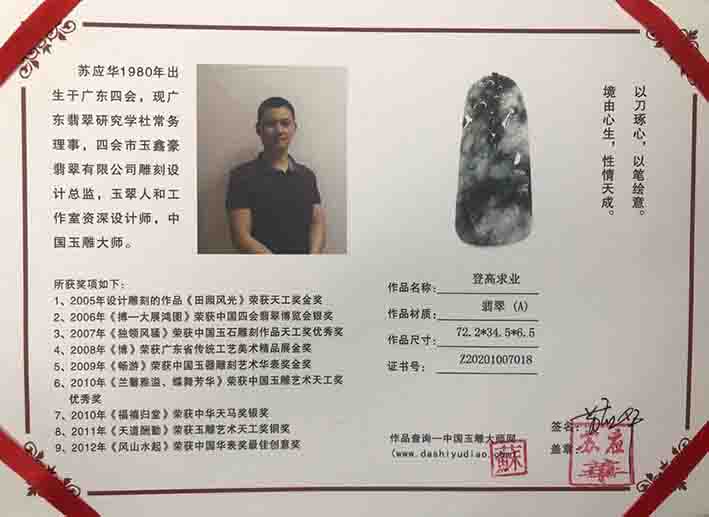 苏应华1980年出
生于广东四会，现广
东翡翠研究学社常务
理事，四会市玉鑫豪
翡翠有限公司雕刻设
计总监，玉翠人和工
作室资深设计师，中
国玉雕大师。
以刀琢心，以笔绘意。
境由心生，性情天成。
所获奖项如下：
1、2005年设计雕刻的作品《田园风光》荣获天工奖金奖
2、2006年《搏一大展鸿图》荣获中国四会翡翠博览会银奖
3、2007年《独领风骚》荣获中国玉石雕刻作品天工奖优秀奖
4、2008年《博》荣获广东省传统工艺美术精品展金奖
5、2009年《畅游》荣获中国玉器雕刻艺术华表奖金奖
6、2010年《兰馨雅溢、蝶舞芳华》荣获中国玉雕艺术天工奖
优秀奖
7、2010年《福禧归堂》荣获中华天马奖银奖
8、2011年《天道酬勤》荣获玉雕艺术天工奖铜奖
9、2012年《风山水起》荣获中国华表奖最佳创意奖
作品名称： 登高求业
作品材质： 翡翠（A）
作品尺寸： 72.2*34.5*6.5
证书号： Z20201007018
作品查询—中国玉雕大师网
(www.dashiyudiao.com)
蘇
签名： 苏应华
盖章：
苏应华